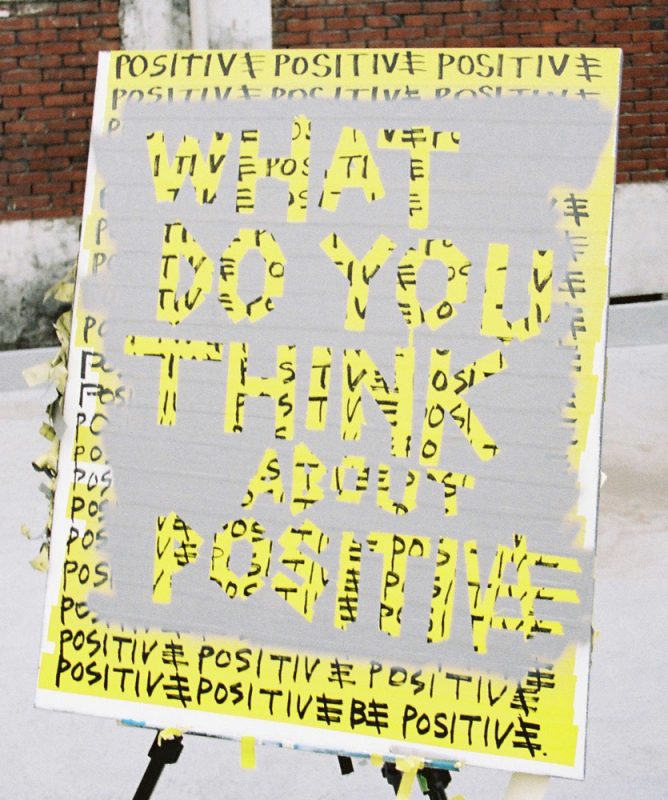 POSITIVE POSITIVE POSITIVE
POSITIVE POSITIVE POSITIVE
WHAT
DO YOU
THINK
ABOUT
POSITIVE
POSITIVE POSITIVE POSITIVE
POSITIVE POSITIVE BE POSITIVE.